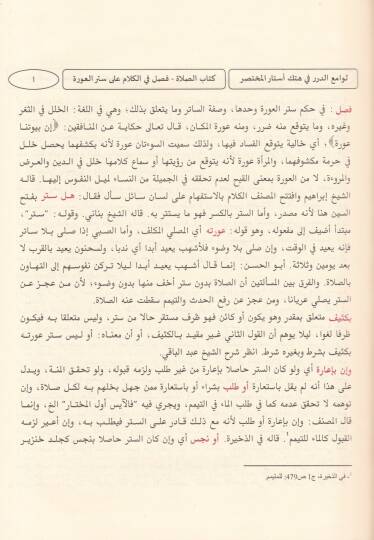 لوامع الدرر في هتك أستار المختصر
كتاب الصلاة - فصل في الكلام على ستر العورة
١
فصل: في حكم ستر العورة وحدها، وصفة الساتر وما يتعلق بذلك، وهي في اللغة: الخلل في الثغر
وغيره، وما يتوقع منه ضرر، ومنه عورة المكان، قال تعالى حكاية عن المنافقين: ﴿إن بيوتنا
عورة﴾، أي خالية يتوقع الفساد فيها، ولذلك سميت السوءتان عورة لأنه بكشفهما يحصل خلل
في حرمة مكشوفهما، والمرأة عورة لأنه يتوقع من رؤيتها أو سماع كلامها خلل في الدين والعرض
والمروءة، لا من العورة بمعنى القبح لعدم تحققه في الجميلة من النساء لميل النفوس إليها. قاله
الشيخ إبراهيم وافتتح المصنف الكلام بالاستفهام على لسان سائل سأل فقال: هل ستر بفتح
السين هنا لأنه مصدر، وأما الستر بالكسر فهو ما يستتر به. قاله الشيخ بناني. وقوله: "ستر"،
مبتدأ أضيف إلى مفعوله، وهو قوله: عورته أي المصلي المكلف، وأما الصبي إذا صلى بلا ساتر
فإنه يعيد في الوقت، وإن صلى بلا وضوء فلأشهب يعيد أبدا أي ندبا، ولسحنون يعيد بالقرب لا
بعد يومين وثلاثة. أبو الحسن: إنما قال أشهب يعيد أبدا ليلا تركن نفوسهم إلى التهاون
بالصلاة. والفرق بين المسألتين أن الصلاة بدون ستر أخف منها بدون وضوء؛ لأن من عجز عن
الستر يصلي عريانا، ومن عجز عن رفع الحدث والتيمم سقطت عنه الصلاة.
بكثيف متعلق بمقدر وهو يكون أو كائن فهو ظرف مستقر حالا من ستر، وليس متعلقا به فيكون
ظرفا لغوا، ليلا يوهم أن القول الثاني غير مقيد بالكثيف، أو أن معناه: أو ليس ستر عورته
بكثيف بشرط وبغيره شرط. انظر شرح الشيخ عبد الباقي.
وإن بإعارة أي ولو كان الستر حاصلا بإعارة من غير طلب ولزمه قبوله، ولو تحقق المنة، ويدل
على هذا أنه لم يقل باستعارة أو طلب بشراء أو باستعارة ممن جهل بخلهم به لكل صلاة، وإن
توهمه لا تحقق عدمه كما في طلب الماء في التيمم، ويجري فيه "فالآيس أول المختار" الخ، وإنما
قال المصنف: وإن بإعارة أو طلب لأنه مع ذلك قادر على الستر فيطلب به، وإن أعير لزمه
القبول كالماء للتيمم¹. قاله في الذخيرة. أو نجس أي وإن كان الستر حاصلا بنجس كجلد خنزير
¹- في الذخيرة، ج1 ص479: للمتيمم